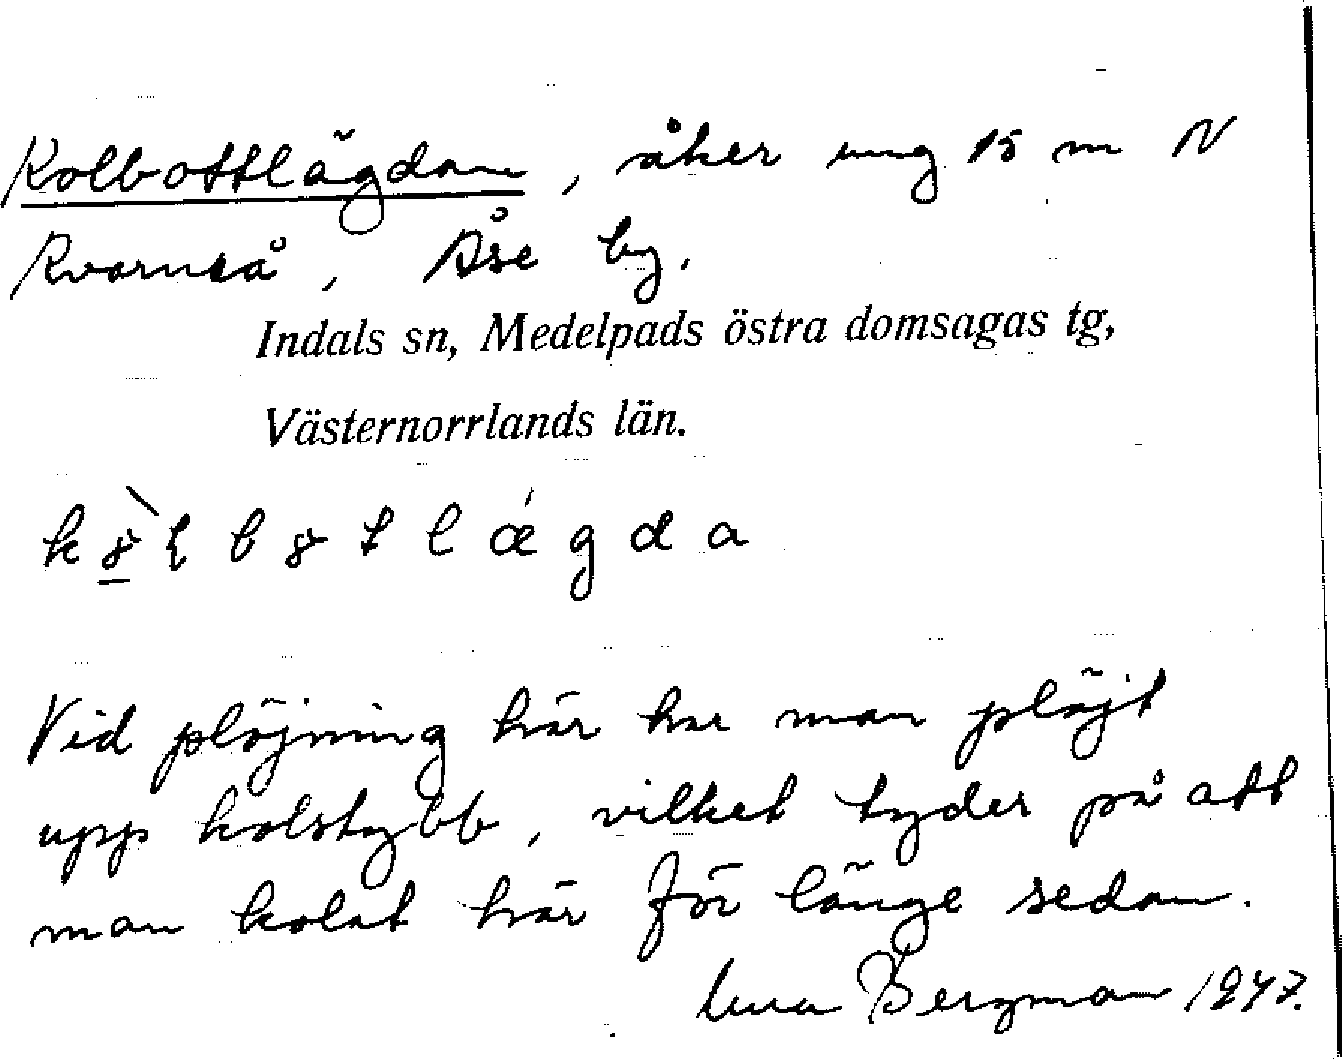 Kolbottlägdan, åker ung 15 m N
Kvarnså, Åse by.
Indals sn, Medelpads östra domsagas tg,
Västernorrlands län.
Vid plöjning här har man plöjt
upp kolstybb, vilket tyder på att
man kolat här för länge sedan.
Bergman 1947.